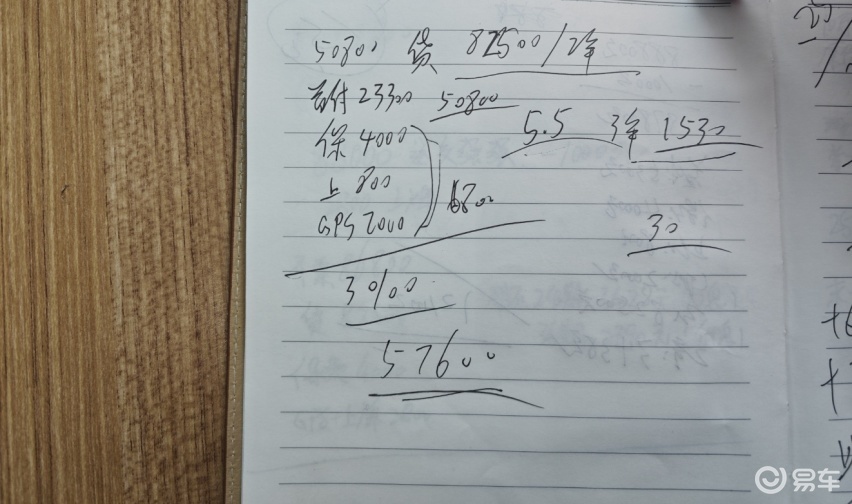 50800 贷 27500/2年
首付23300 50800
保 4000 5.5 3年 1530
上 800 6800
GPS 2000 30
30100
57600
易车